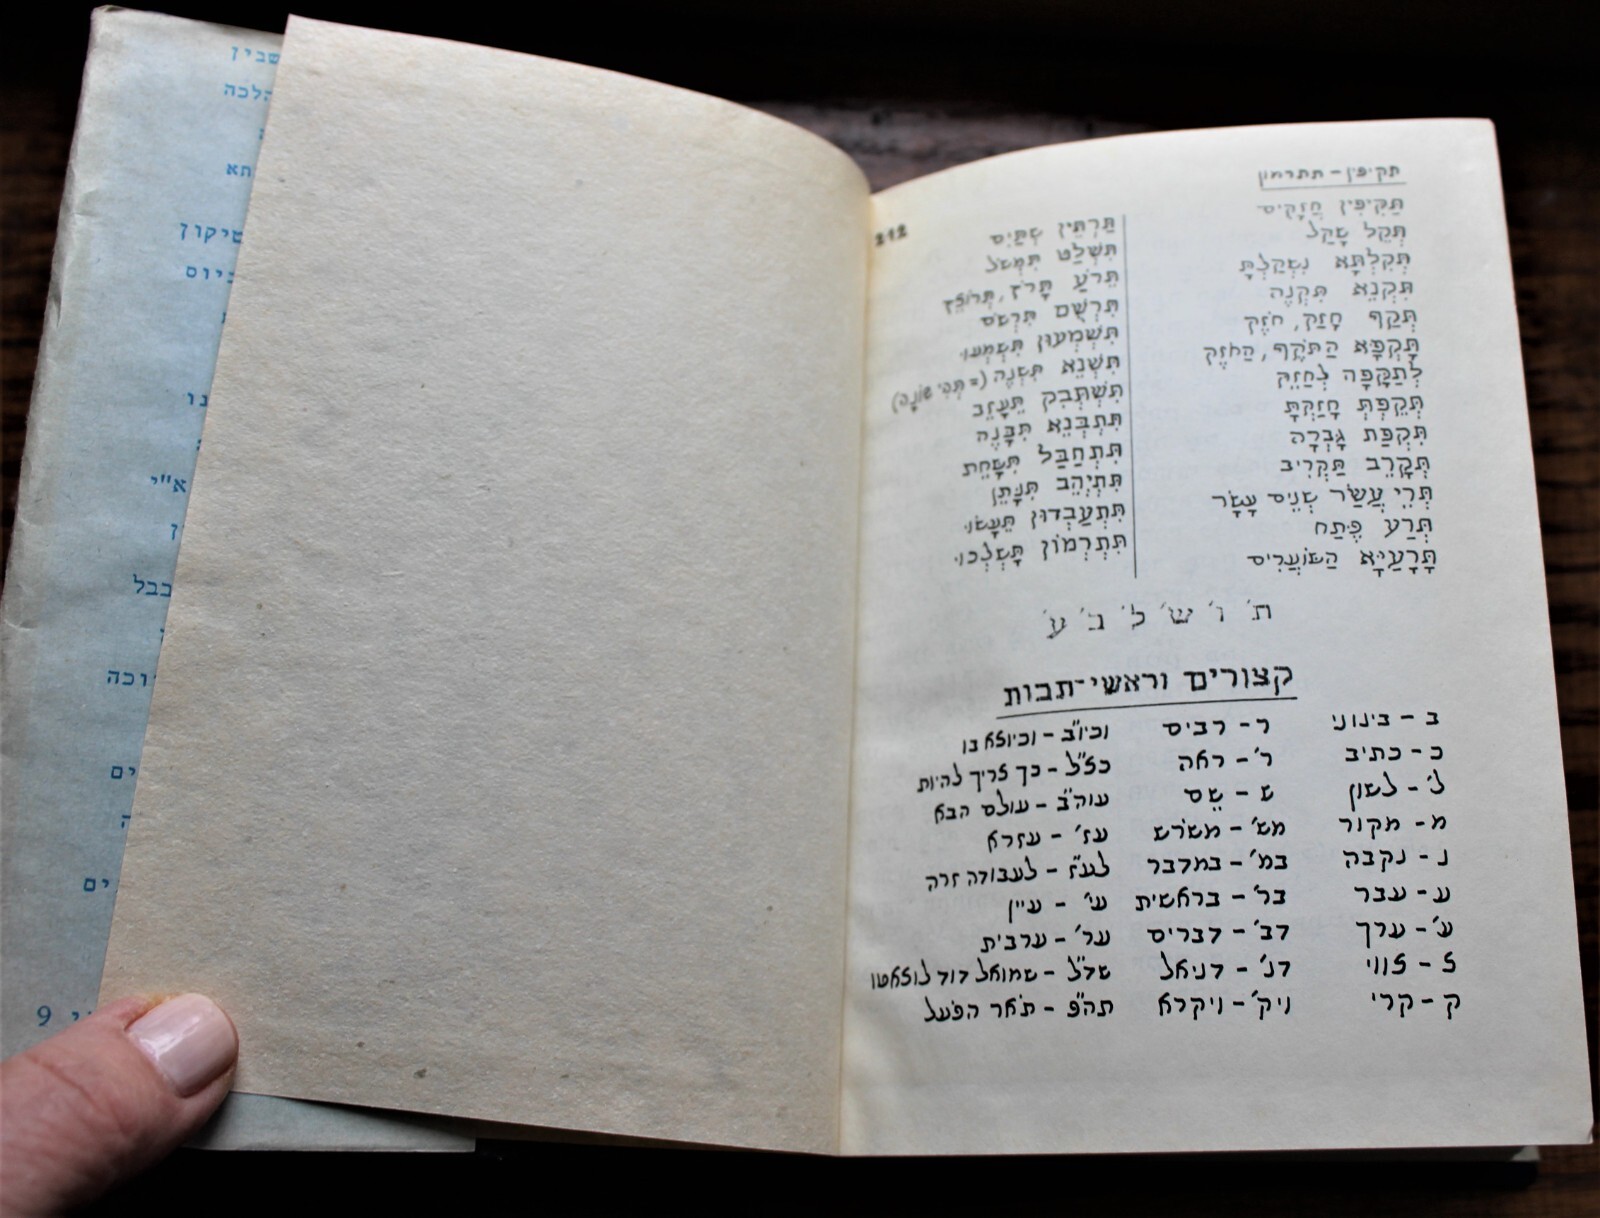 תקיפין - תתרמון
212
תַּקִּיפִין חֲזָקִים
תְּקֵל שָׁקַל
תְּקִלְתָּא נִשְׁקַלְתָּ
תִּקְנֵא תִּקְנֶה
תְּקֵף חָזַק, חֹזֶק
תָּקְפָּא הַתֹּקֶף, הַחֹזֶק
לְתַקָּפָה לְחַזֵּק
תְּקֵפְתְּ חָזַקְתָּ
תִּקְפַּת גָּבְרָה
תְּקָרֵב תַּקְרִיב
תְּרֵי עֲשַׂר שְׁנֵים עָשָׂר
תְּרַע פֶּתַח
תָּרָעַיָּא הַשּׁוֹעֲרִים
תַּרְתֵּין שְׁתַּיִם
תִּשְׁלַט תִּמְשֹׁל
תֵּרֹעַ תָּרֹץ, תְּרוֹצֵץ
תִּרְשֻׁם תִּרְשֹׁם
תִּשְׁמְעוּן תִּשְׁמְעוּ
תִּשְׁנֵא תִּשְׁנֶה (= תְּהִי שׁוֹנָה)
תִּשְׁתְּבִק תֵּעָזֵב
תִּתְבְּנֵא תִּבָּנֶה
תִּתְחַבַּל תִּשָּׁחֵת
תִּתְיְהֵב תִּנָּתֵן
תִּתְעַבְדוּן תֵּעָשׂוּ
תִּתְרְמוֹן תָּשְׁלְכוּ
ת' ו' ש' ל' ב' ע'
קצורים וראשי-תבות
ב - בינוני ר - רבים וכיו"ב - וכיוצא בו
כ - כתיב ר' - ראה כצ"ל - כך צריך להיות
ל' - לשון ש - שֵׁם עוה"ב - עולם הבא
מ - מקור מש' - משׁרש עז' - עזרא
נ - נקבה במ' - במדבר לע"ז - לעבודה זרה
ע - עבר בר' - בראשית עי' - עיין
ע' - ערך דב' - דברים ער' - ערבית
צ - צווי דנ' - דניאל שד"ל - שמואל דוד לוצאטו
ק - קרי ויק' - ויקרא תה"פ - תאר הפעל
הלכה
יום
א"י
בבל
9